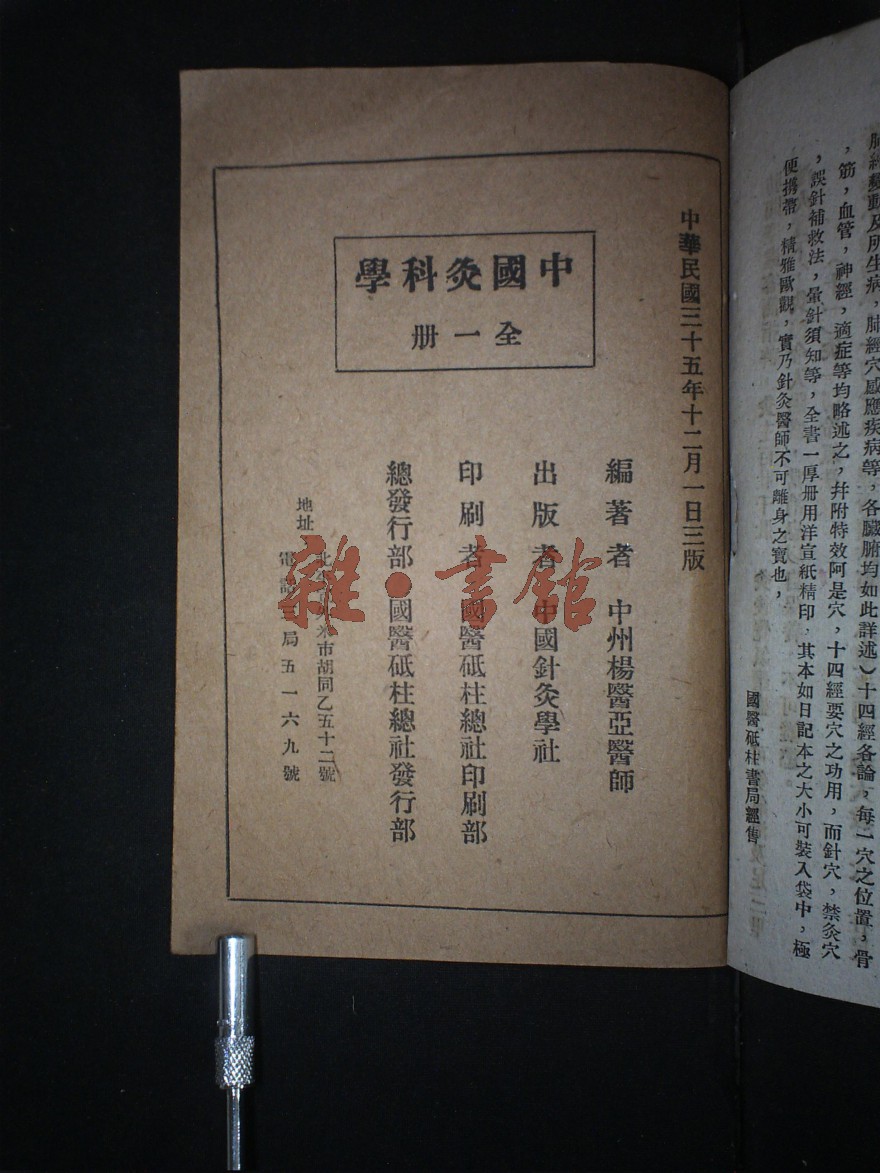 肺經變動及所生病，肺經穴感應疾病等，各臟腑均如此詳述）十四經各論，每一穴之位置，骨
，筋，血管，神經，適症等均略述之，幷附特效阿是穴，十四經要穴之功用，而針穴，禁灸穴
，誤針補救法，暈針須知等，全書一厚册用洋宣紙精印，其本如日記本之大小可裝入袋中，極
便攜帶，精雅歐觀，實乃針灸醫師不可離身之寶也，
國醫砥柱書局經售
中華民國三十五年十二月一日三版
中國灸科學
全一册
編著者 中州楊醫亞醫師
出版者 中國針灸學社
印刷者 國醫砥柱總社印刷部
總發行部 國醫砥柱總社發行部
地址 米市胡同乙五十二號
電話三局五一六九號
雜·書館